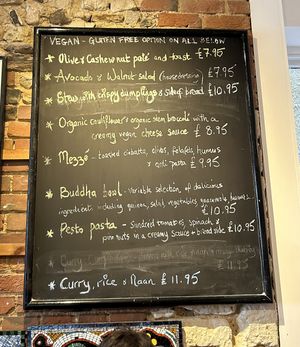 VEGAN - GLUTEN FREE OPTION ON ALL BELOW
* Olive & Cashewnut paté and toast £7.95
* Avocado & Walnut salad (house dressing) £7.95
* Stew with crispy dumplings & side of bread £10.95
* Organic cauliflower & organic stem broccoli with a
creamy vegan cheese sauce £8.95
* Mezzé - toasted ciabatta, olives, felafels, humus
& anti pasta £9.95
* Buddha bowl - Variable selection of delicious
ingredients including quinoa, salad, vegetables, guacamole, humus
£10.95
* Pesto pasta - Sundried tomatoes, spinach &
pine nuts in a creamy sauce + bread side £10.95
* Curry,
£11.95
* Curry, rice & Naan £11.95